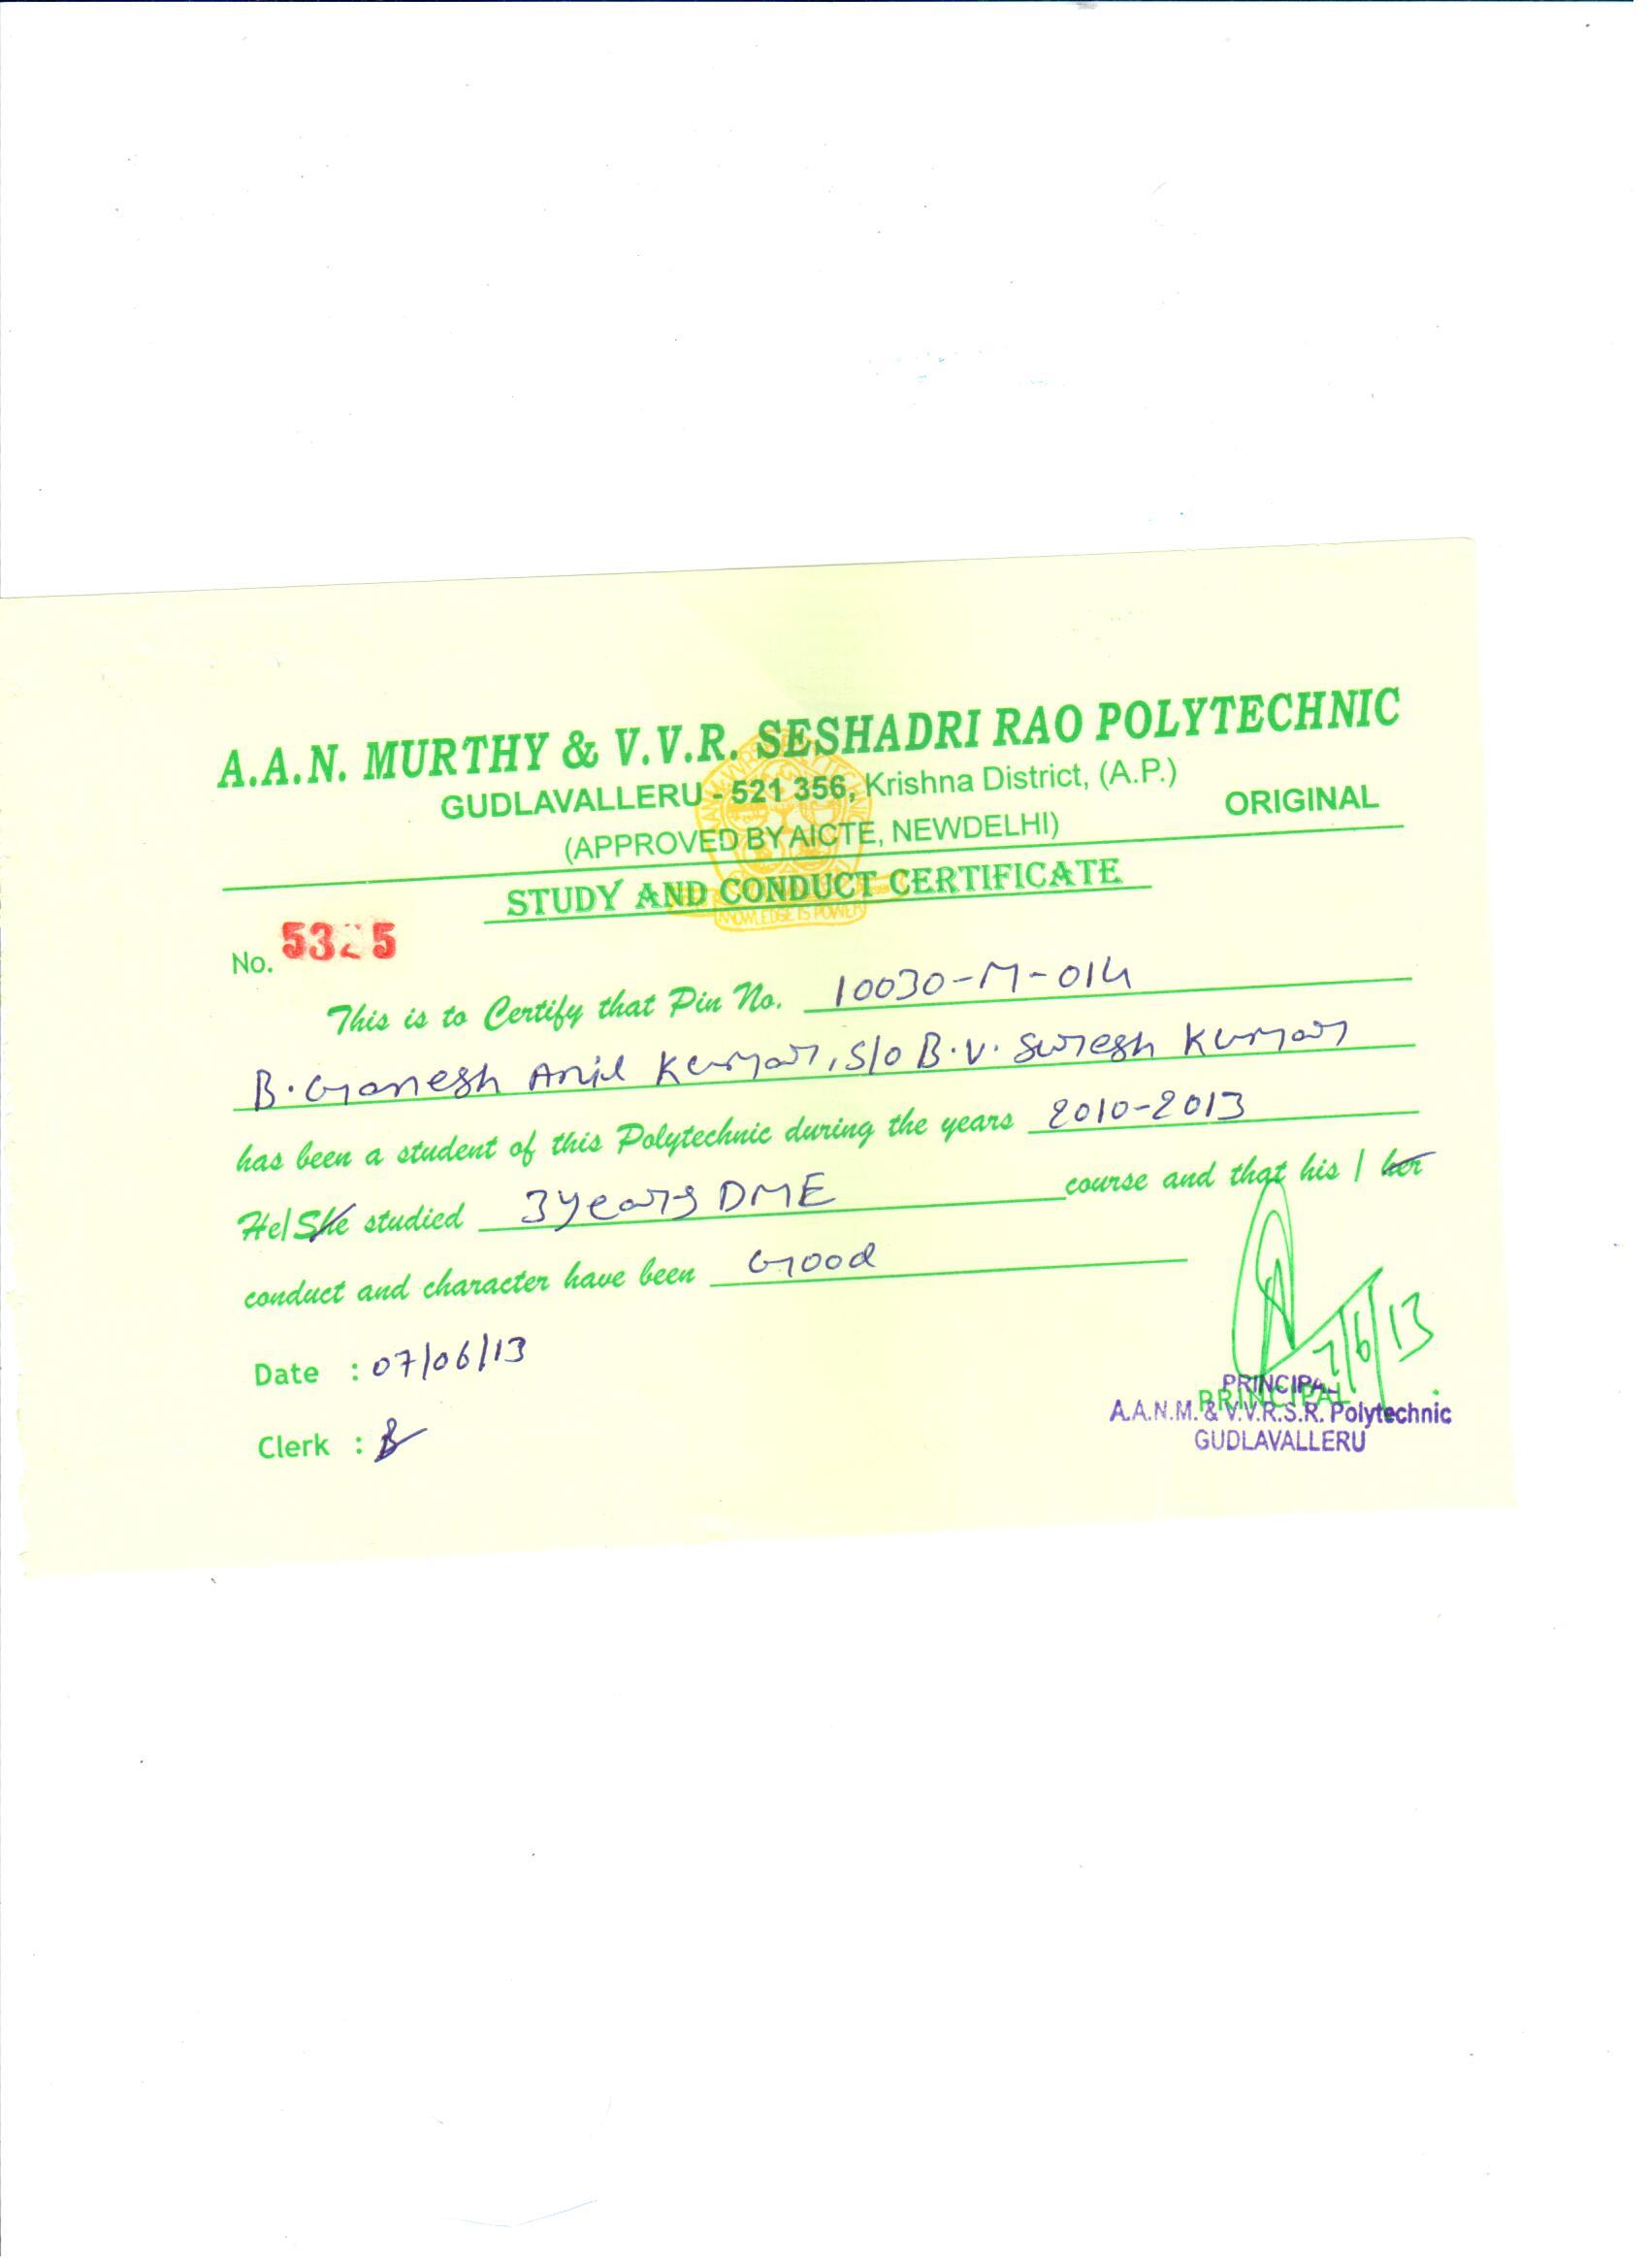 A.A.N. MURTHY & V.V.R. SESHADRI RAO POLYTECHNIC
GUDLAVALLERU - 521 356, Krishna District, (A.P.)
(APPROVED BY AICTE, NEWDELHI)
ORIGINAL
STUDY AND CONDUCT CERTIFICATE
KNOWLEDGE IS POWER
No.
This is to Certify that Pin No. 10030-M-014
B. Ganesh Anil Kumar, S/o B.V. Suresh Kumar
has been a student of this Polytechnic during the years 2010-2013
He/She studied 3 years DME course and that his / her
conduct and character have been Good
Date : 07/06/13
7/6/13
Clerk :
PRINCIPAL
PRINCIPAL
A.A.N.M. & V.V.R.S.R. Polytechnic
GUDLAVALLERU